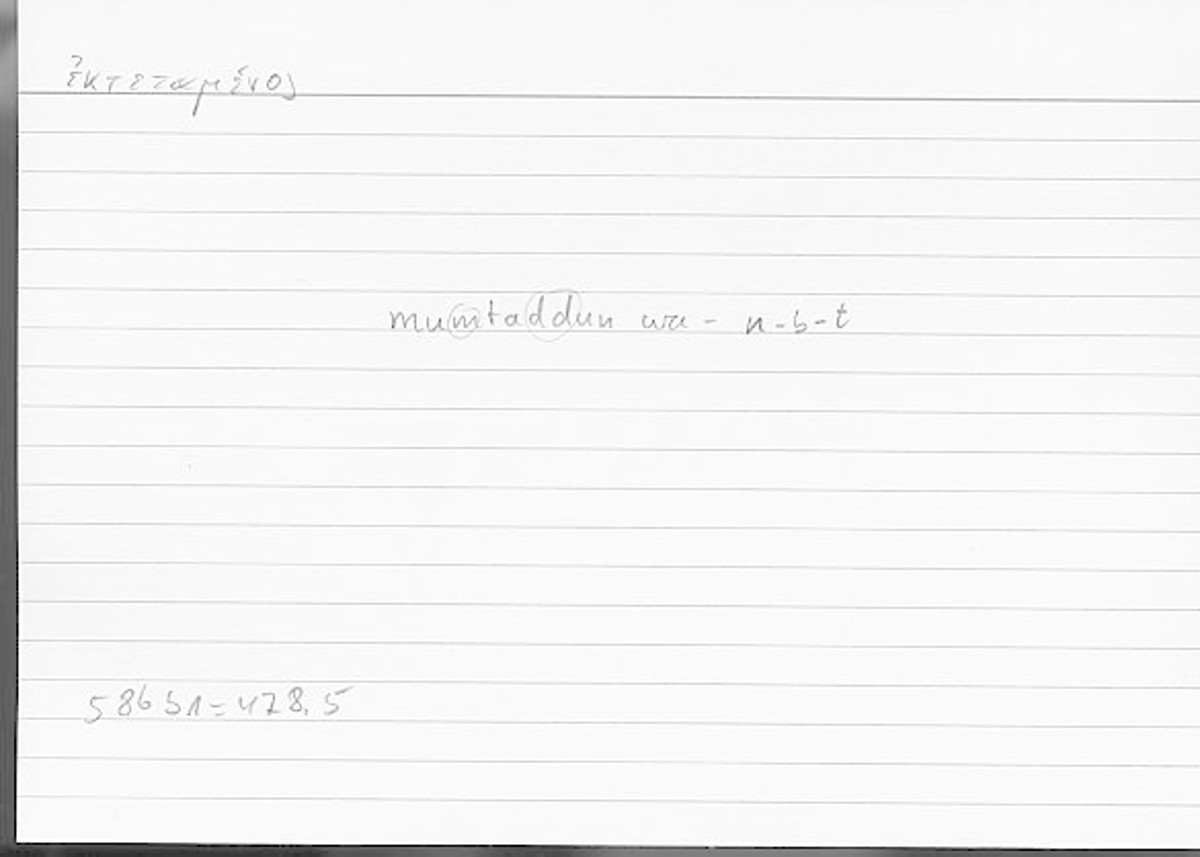 ἐκτεταμένος
mumtaddun wa- n-b-ṭ
586b1=478.5